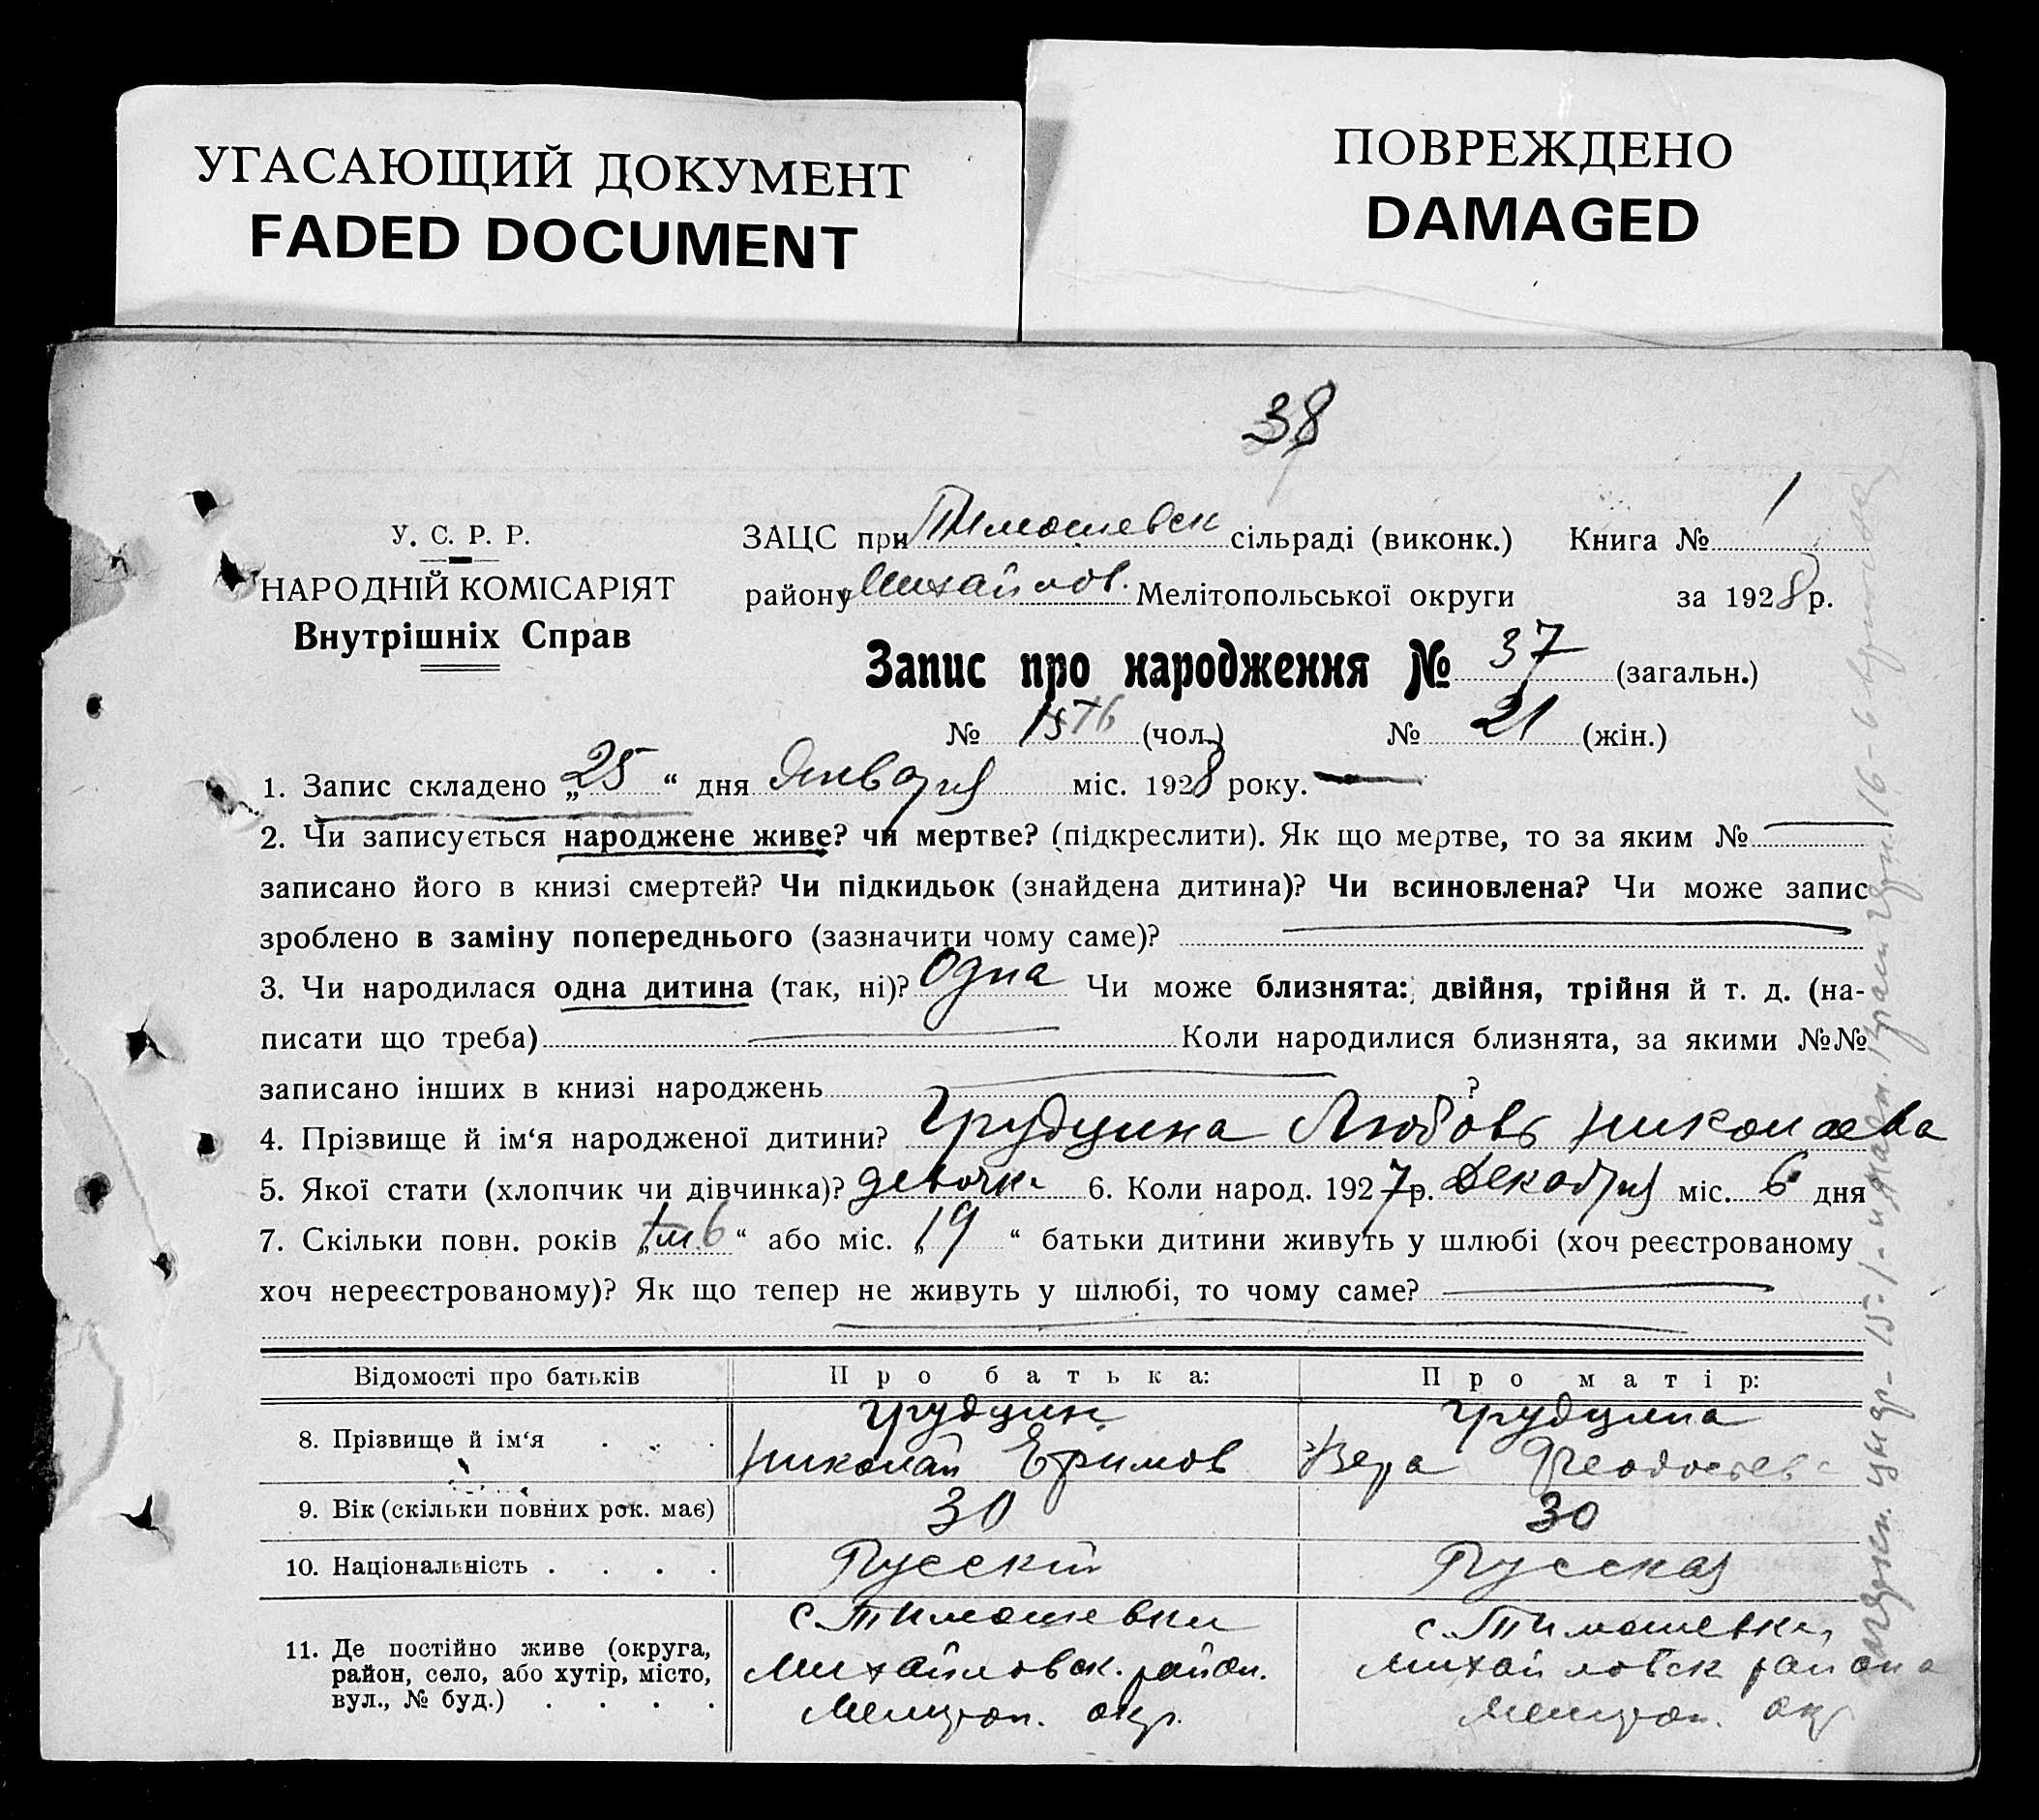 УГАСАЮЩИЙ ДОКУМЕНТ
FADED DOCUMENT
ПОВРЕЖДЕНО
DAMAGED
38
У. С. Р. Р.
НАРОДНІЙ КОМІСАРІЯТ
Внутрішніх Справ
ЗАЦС при Тимошевск сільраді (виконк.) Книга № 1
району Михайлов. Мелітопольської округи за 1928 р.
Запис про народження № 37 (загальн.)
№ 16 (чол.) № 21 (жін.)
1. Запис складено „25“ дня Января міс. 1928 року.
2. Чи записується народжене живе? чи мертве? (підкреслити). Як що мертве, то за яким №
записано його в книзі смертей? Чи підкидьок (знайдена дитина)? Чи всиновлена? Чи може запис
зроблено в заміну попереднього (зазначити чому саме)?
3. Чи народилася одна дитина (так, ні)? Одна Чи може близнята: двійня, трійня й т. д. (на-
писати що треба) Коли народилися близнята, за якими №№
записано інших в книзі народжень ?
4. Прізвище й ім‘я народженої дитини? Грудцина Любовь Николаева
5. Якої стати (хлопчик чи дівчинка)? девочка 6. Коли народ. 1927 р. Декабря міс. 6 дня
7. Скільки повн. років „ 6 “ або міс. „19“ батьки дитини живуть у шлюбі (хоч реєстрованому
хоч нереєстрованому)? Як що тепер не живуть у шлюбі, то чому саме?
Відомості про батьків
Про батька:
Про матір:
8. Прізвище й ім‘я . . .
Грудцин
Николай Ефимов
Грудцина
Вера Феодосьев
9. Вік (скільки повних рок. має)
30
30
10. Національність . . . .
Русский
Русская
11. Де постійно живе (округа,
район, село, або хутір, місто,
вул., № буд.) . . . .
с. Тимошевки
Михайловск. район.
Мелитоп. окр.
с. Тимошевки,
Михайловск района
Мелитоп. окр